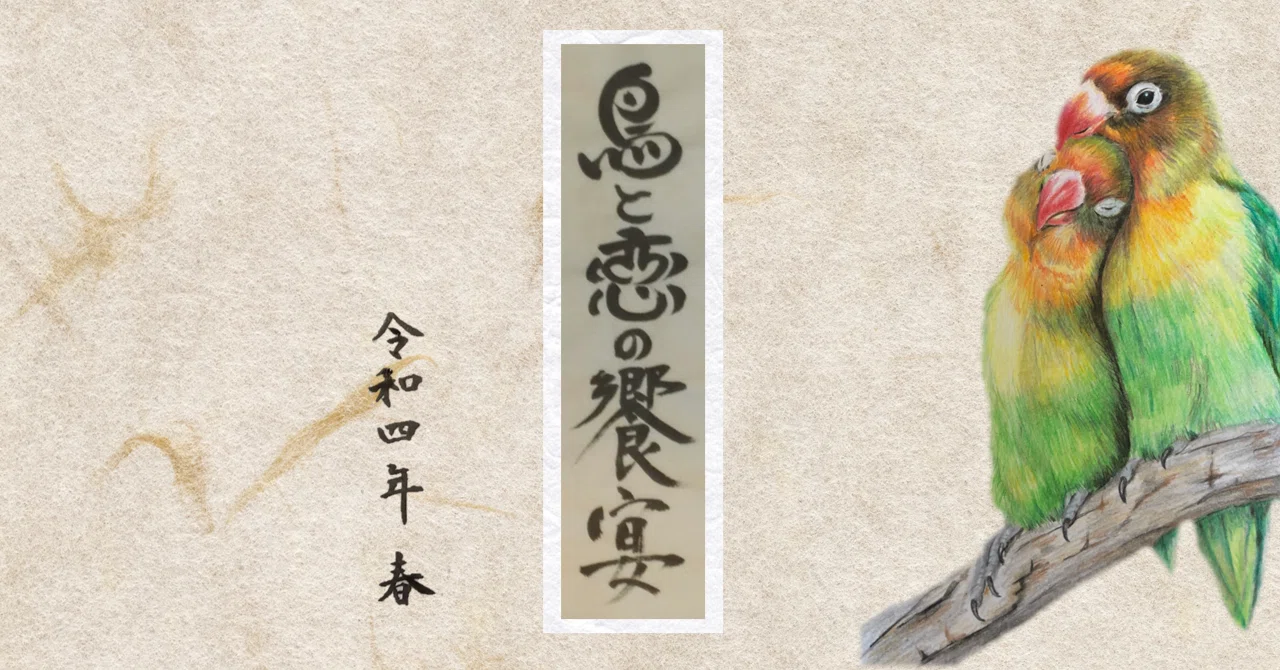 鳥と恋の饗宴
令和四年 春